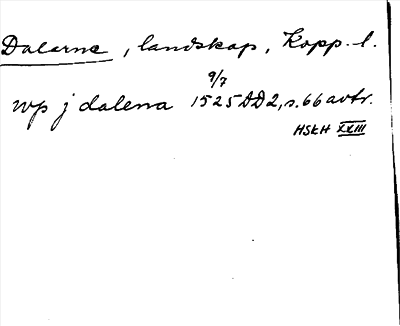 Dalarne, landskap, Kopp. l.
9/7
wp j dalena 1525 DD2, s. 66 avtr.
HSkH XXIII